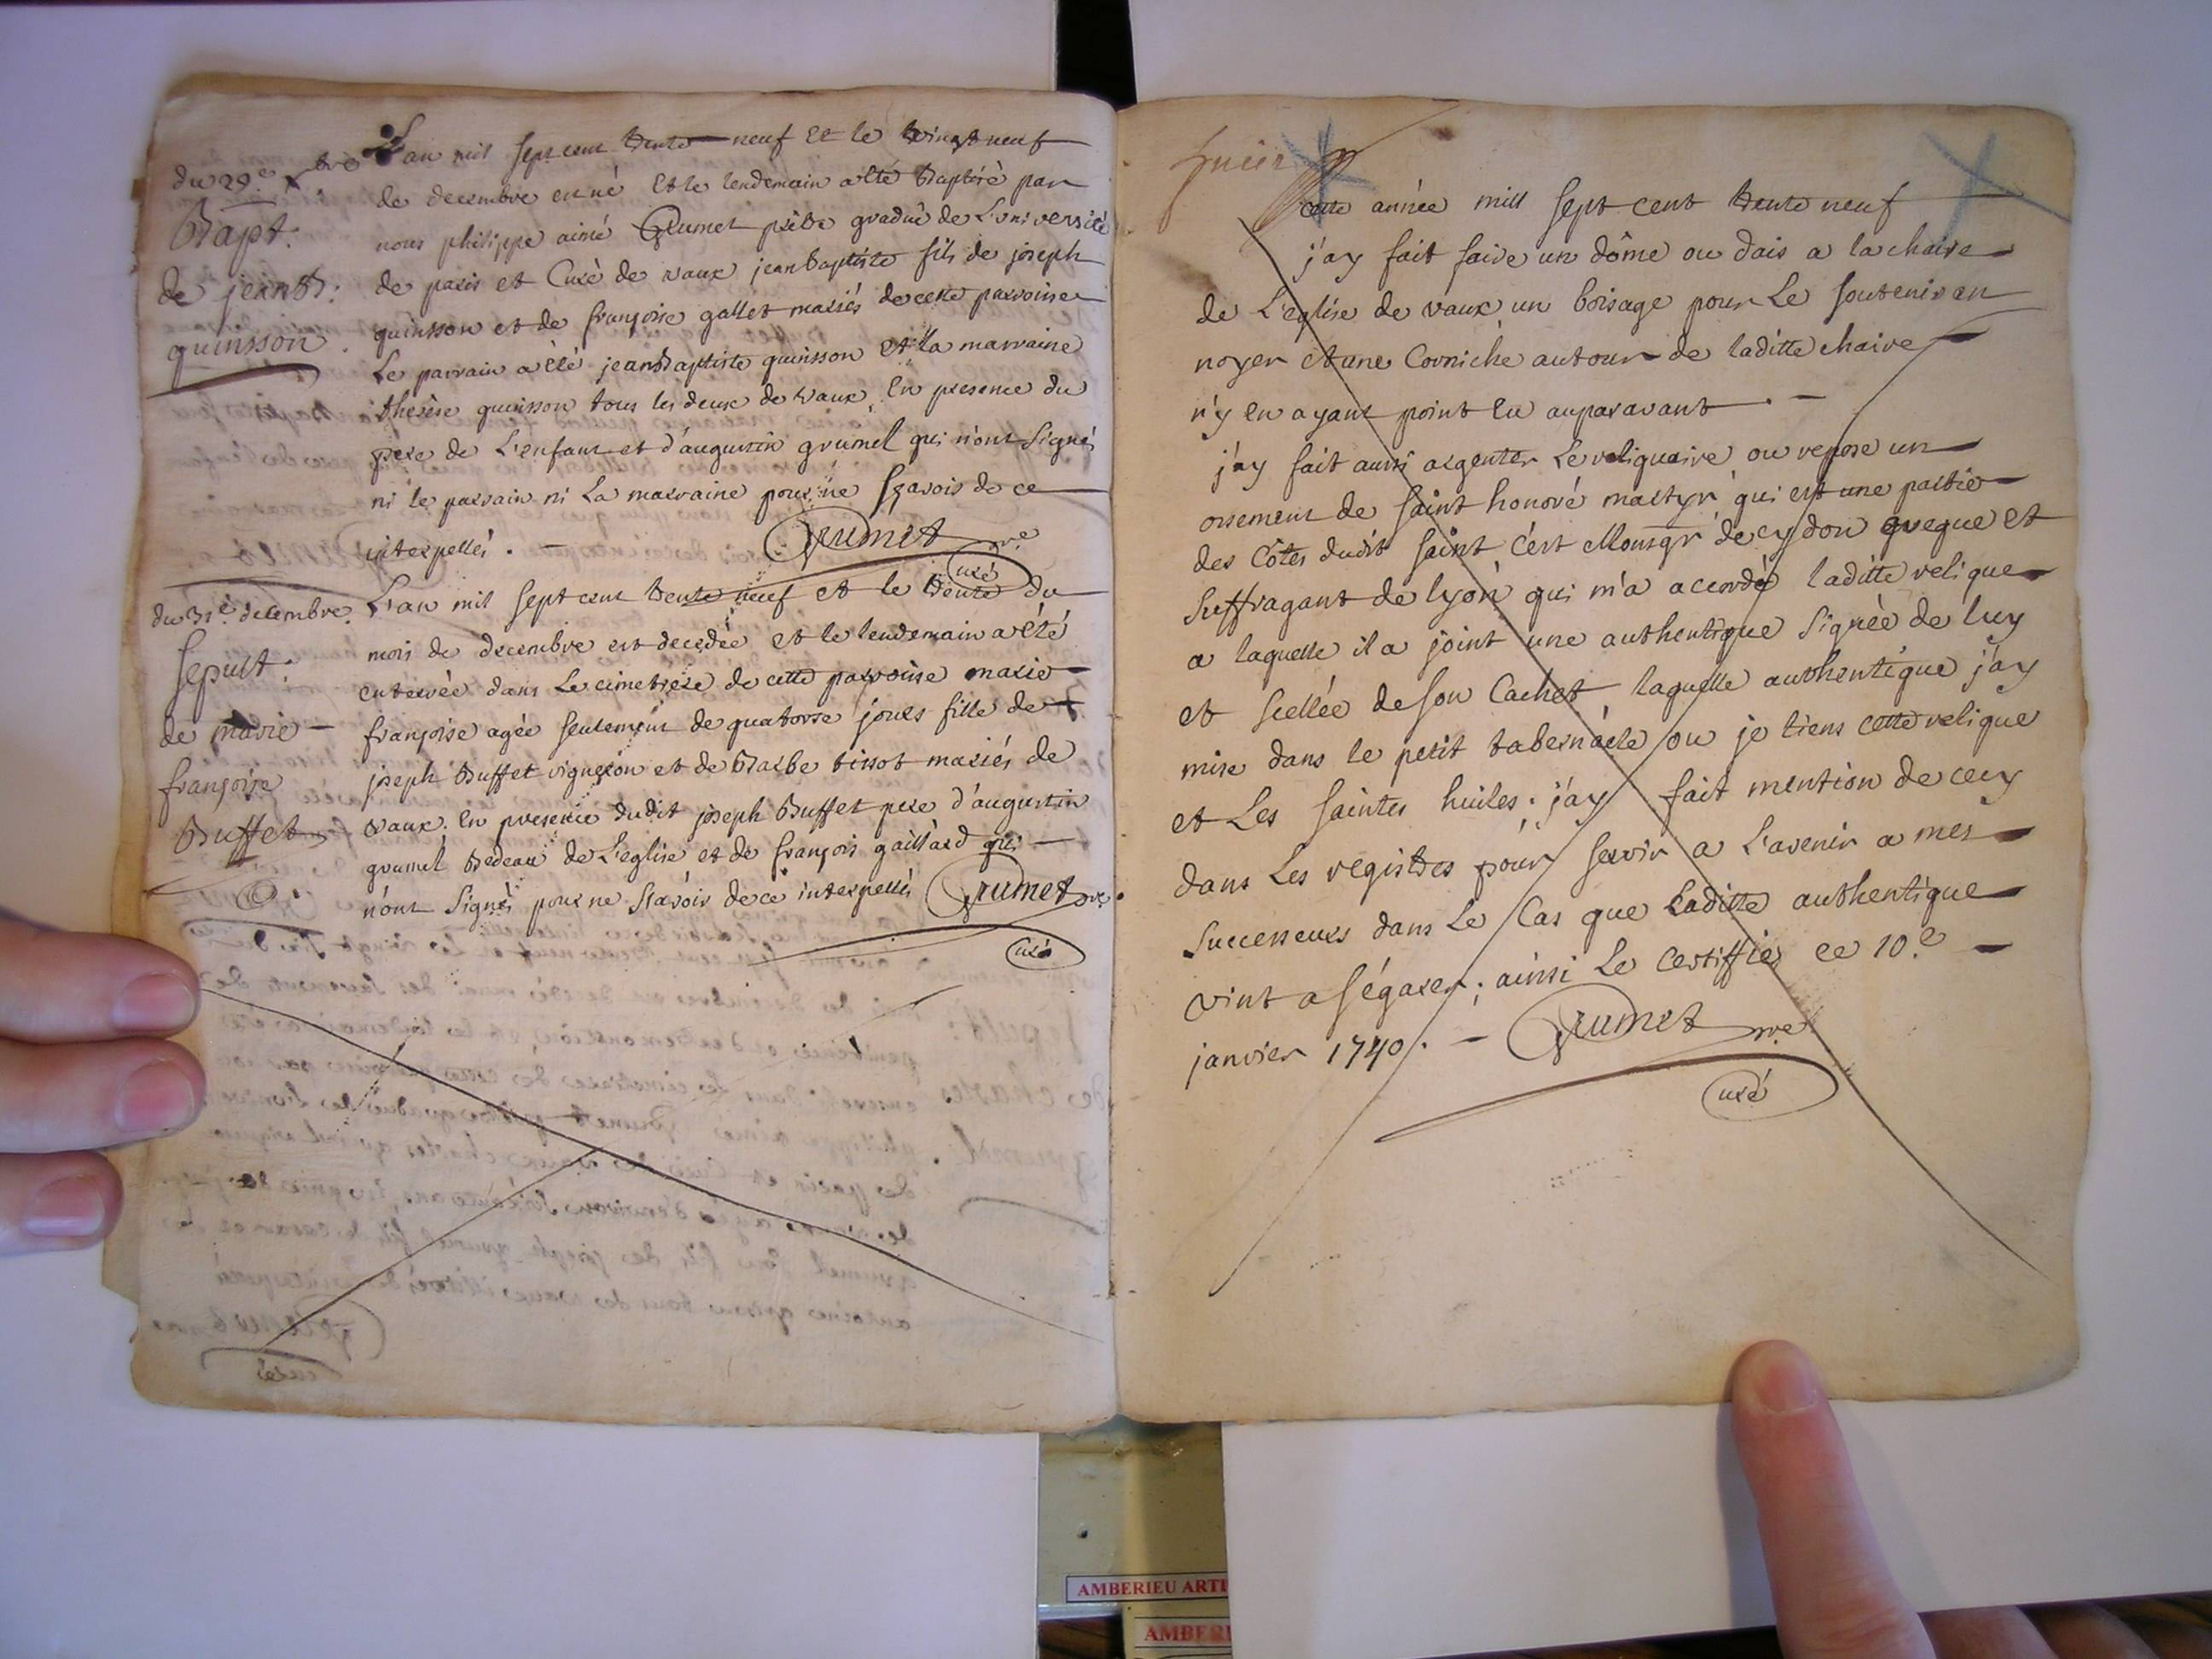 du 29e xbre
Bapt:
de jean B:
quinsson
L'an mil sept cent trente neuf et le vingt neuf
de decembre est né et le lendemain a eté Baptisé par
nous philippe aimé Grumet prêtre gradué de L'université
de paris et Curé de vaux jean baptiste fils de joseph
quinsson et de françoise gallet mariés de cette parroisse
Le parrain a été jean Baptiste quinsson et la marraine
therèse quinsson tous les deux de vaux, En presence du
pere de L'enfant et d'augustin grumel qui n'ont signé
ni le parrain ni La marraine pour ne sçavoir de ce
interpellés. - Grumet ptre
curé
du 31e decembre
sepult:
de marie -
françoise
Buffet
L'an mil sept cent trente neuf et le trente du
mois de decembre est decedée et le lendemain a été
enterrée dans Le cimetiere de cette parroisse marie
françoise agée seulement de quatorse jours fille de
joseph Buffet vigneron et de Barbe tissot mariés de
vaux. En presence dudit joseph Buffet pere d'augustin
grumel Bedeau de L'eglise et de françois gaillard qui -
n'ont signés pour ne sçavoir de ce interpellés Grumet ptre
curé
cette année mill sept cent trente neuf
j'ay fait faire un dôme ou dais a la chaire
de L'eglise de vaux un boisage pour Le soutenir en
noyer et une Corniche autour de laditte chaire
n'y en ayant point eu auparavant. -
j'ay fait aussi argenter Le reliquaire ou repose un
ossement de saint honoré martyr qui est une partie
des Côtes dudit saint c'est Monsgr de cydon eveque et
suffragant de lyon qui m'a accordé laditte relique
a laquelle il a joint une authentique signée de luy
et scellée de son Cachet laquelle authentique j'ay
mise dans le petit tabernacle ou je tiens cette relique
et Les saintes huiles; j'ay fait mention de cecy
dans Les registres pour servir a L'avenir a mes
successeurs dans Le Cas que Laditte authentique
vint a s'égarer; ainsi Le certiffie ce 10e -
janvier 1740. - Grumet ptre
curé
AMBERIEU ARTI
AMBERI